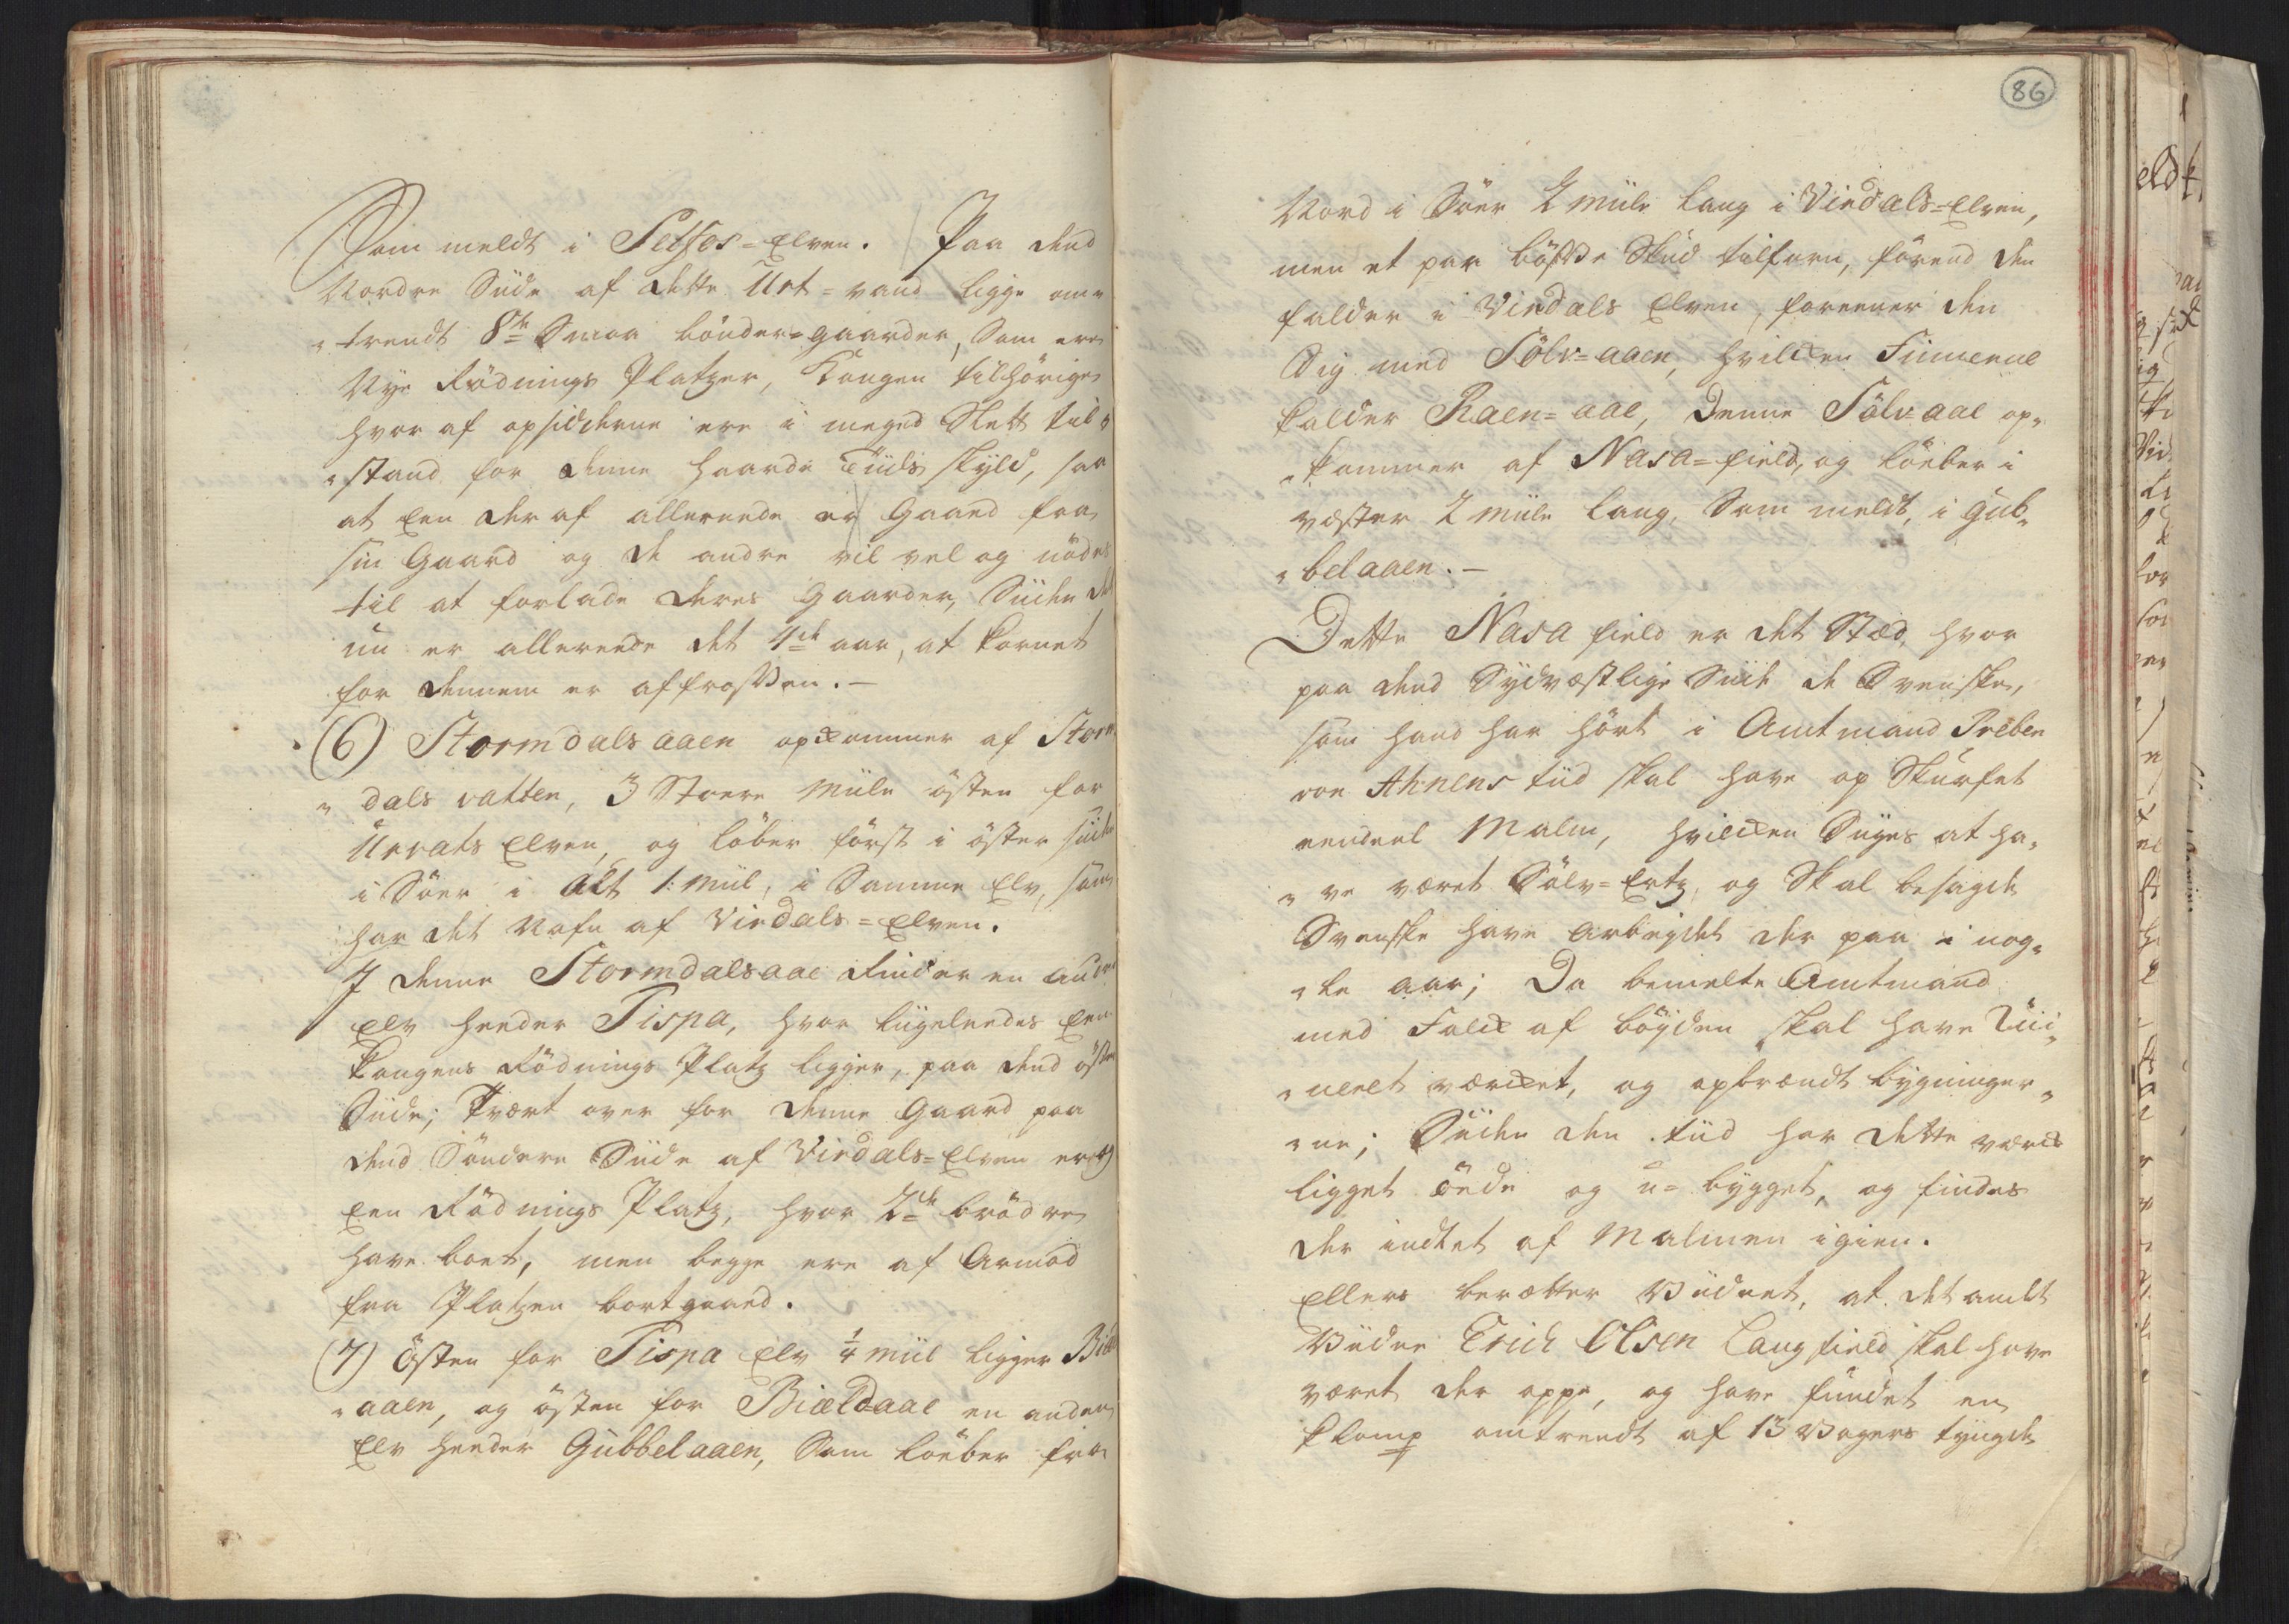 Som meldt i Selfos=Elven. / Paa dend
Nordre Siide af dette Urt=vand ligge om„
„trendt 8te Smaa bönder=gaarder, Som ere
Nye Rödnings Platzer, Kongen tilhörige
hvor af opsidderne ere i meged Slett til„
„stand for denne haarde Tiids skyld, saa
at Een der af allereede er Gaaed fra
sin Gaard og de andre vil vel og nödes
til at forlade deres Gaarder, Siiden det
nu er allereede det 4de aar, at kornet
for dennem er affrossen.–
(6) Stormdalsaaen opkommer af Storm
„dals vatten, 3 Store Miile östen for
Urvats Elven, og löber först i öster siide
i Söer i alt 1: Miil, i Samme Elv, som
har det Nafn af Virdals=Elven.
I denne Stormdalsaae Rinder en anden
Elv heeder Tispa, hvor liigeleedes Een
Kongens Rödnings Platz ligger, paa dend östre
Siide; Tvært over for denne Gaard paa
dend Söndere Siide af Virdals=Elven er og
een Rödnings Platz, hvor 2de brödre
have boet, men begge ere af Armod
fra Platzen bortgaaed.
(7) östen for Tispa Elv 1/4 Miil ligger Bield
„aaen, og östen for Bieldaae en anden
Elv heeder Gubbelaaen, Som löeber fra
86
Nord i Söer 2 Miile lang i Virdals=Elven,
men et par bösse Skud tilforn, förend den
falder i Virdals Elven, foreener den
Sig med Sölv=aaen, hvilken Finnerne
kalder Raen=aae, Denne Sölv=aae op„
„kommer af Nasa=field, og löeber i
væster 2 Miile lang, Som meldt, i Gub„
„belaaen.–
Dette Nasa field er det Stæd, hvor
paa dend Sydvæstlige Siide de Svenske,
som hand har hört i Amtmand Preben
von Ahnens tiid skal have op Skurfet
eendeel Malm, hvilken Siiges at ha„
„ve været Sölv=Ertz, og Skal besagde
Svenske have Arbeydet der paa i nog„
„le aar; Da bemelte Amtmand
med Folck af böyden skal have Rui„
„neert værcket, og opbrændt bygninger„
„ne; Siiden den tiid har dette værck
ligget öede og u=bygget, og findes
der indtet af Malmen igien.
Ellers berætter Viidnet, at det andet
Viidne Erich Olsen Langfield skal have
været der oppe, og have fundet en
klomp omtrendt af 13 Vogers tyngde